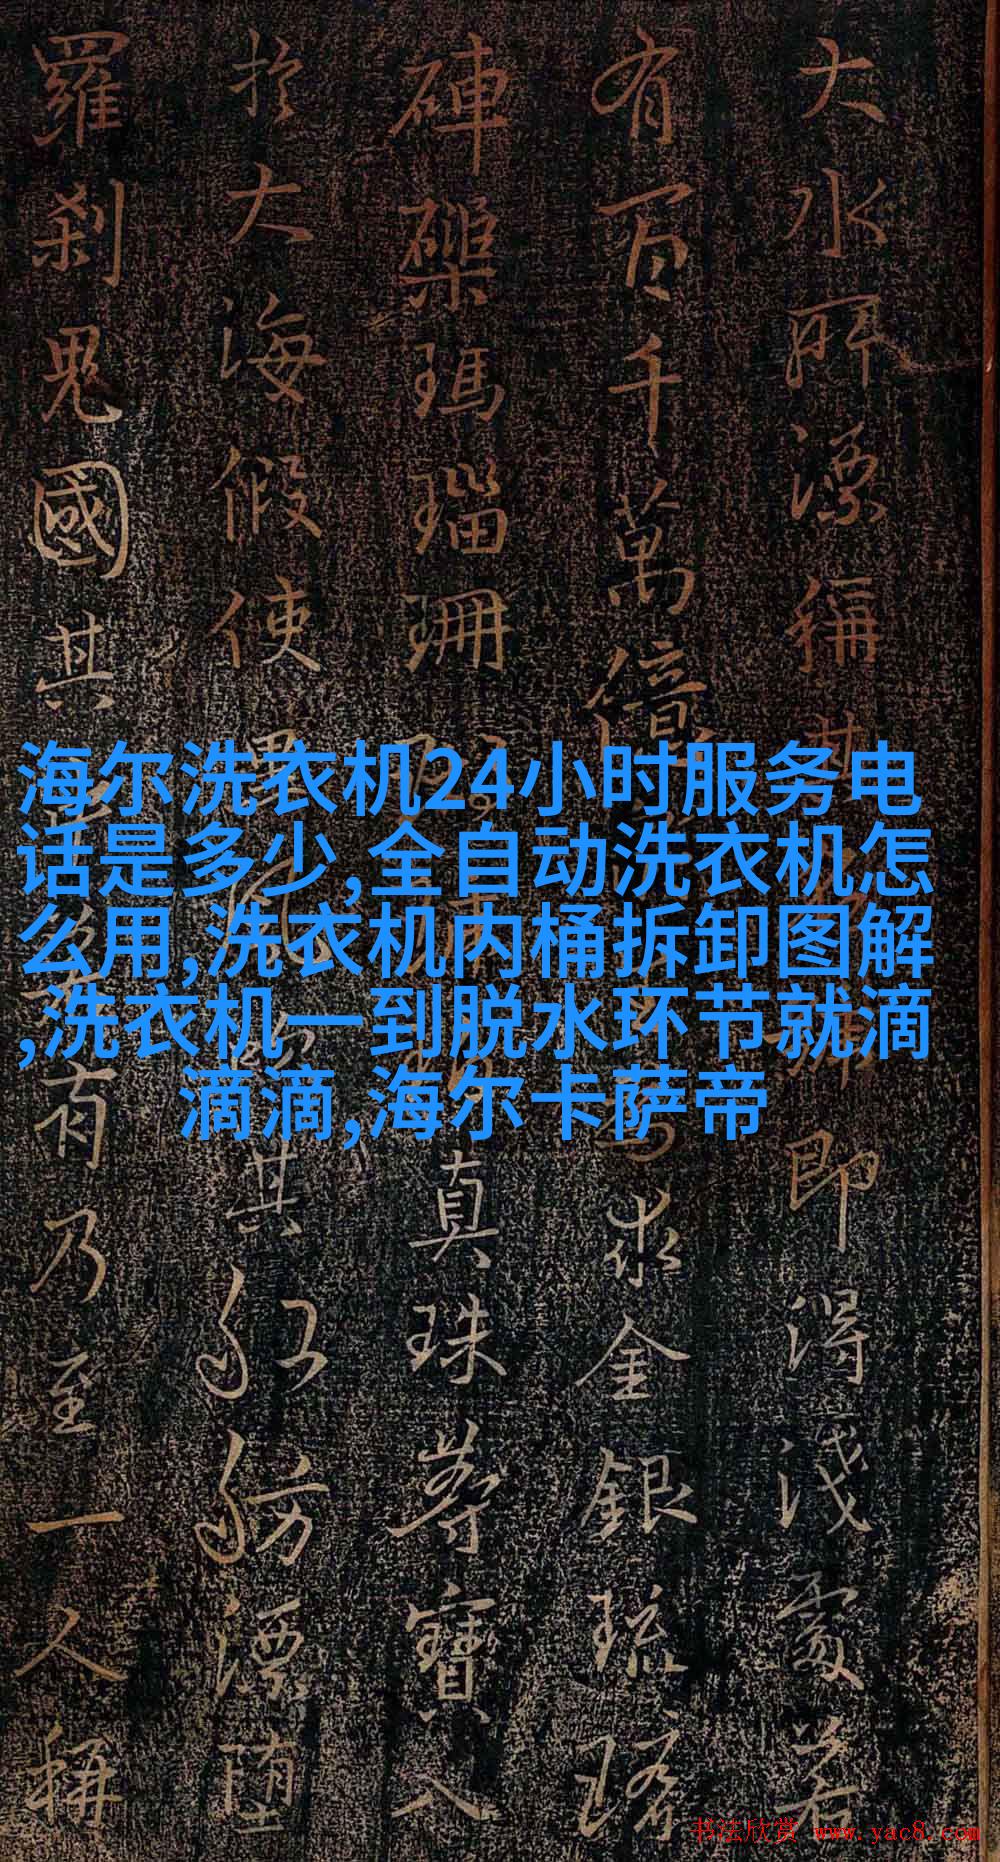 大水所漂稱其即得淺處若
有百千萬億為求金銀琉璃
硨磲瑪瑙珊真珠等寶入
於大海假使黑風其船舫漂墮
羅剎鬼國其有乃至一人稱
海尔洗衣机24小时服务电
话是多少,全自动洗衣机怎
么用,洗衣机内桶拆卸图解
,洗衣机一到脱水环节就滴
滴滴,海尔卡萨帝
书法欣赏 www.yac8.com